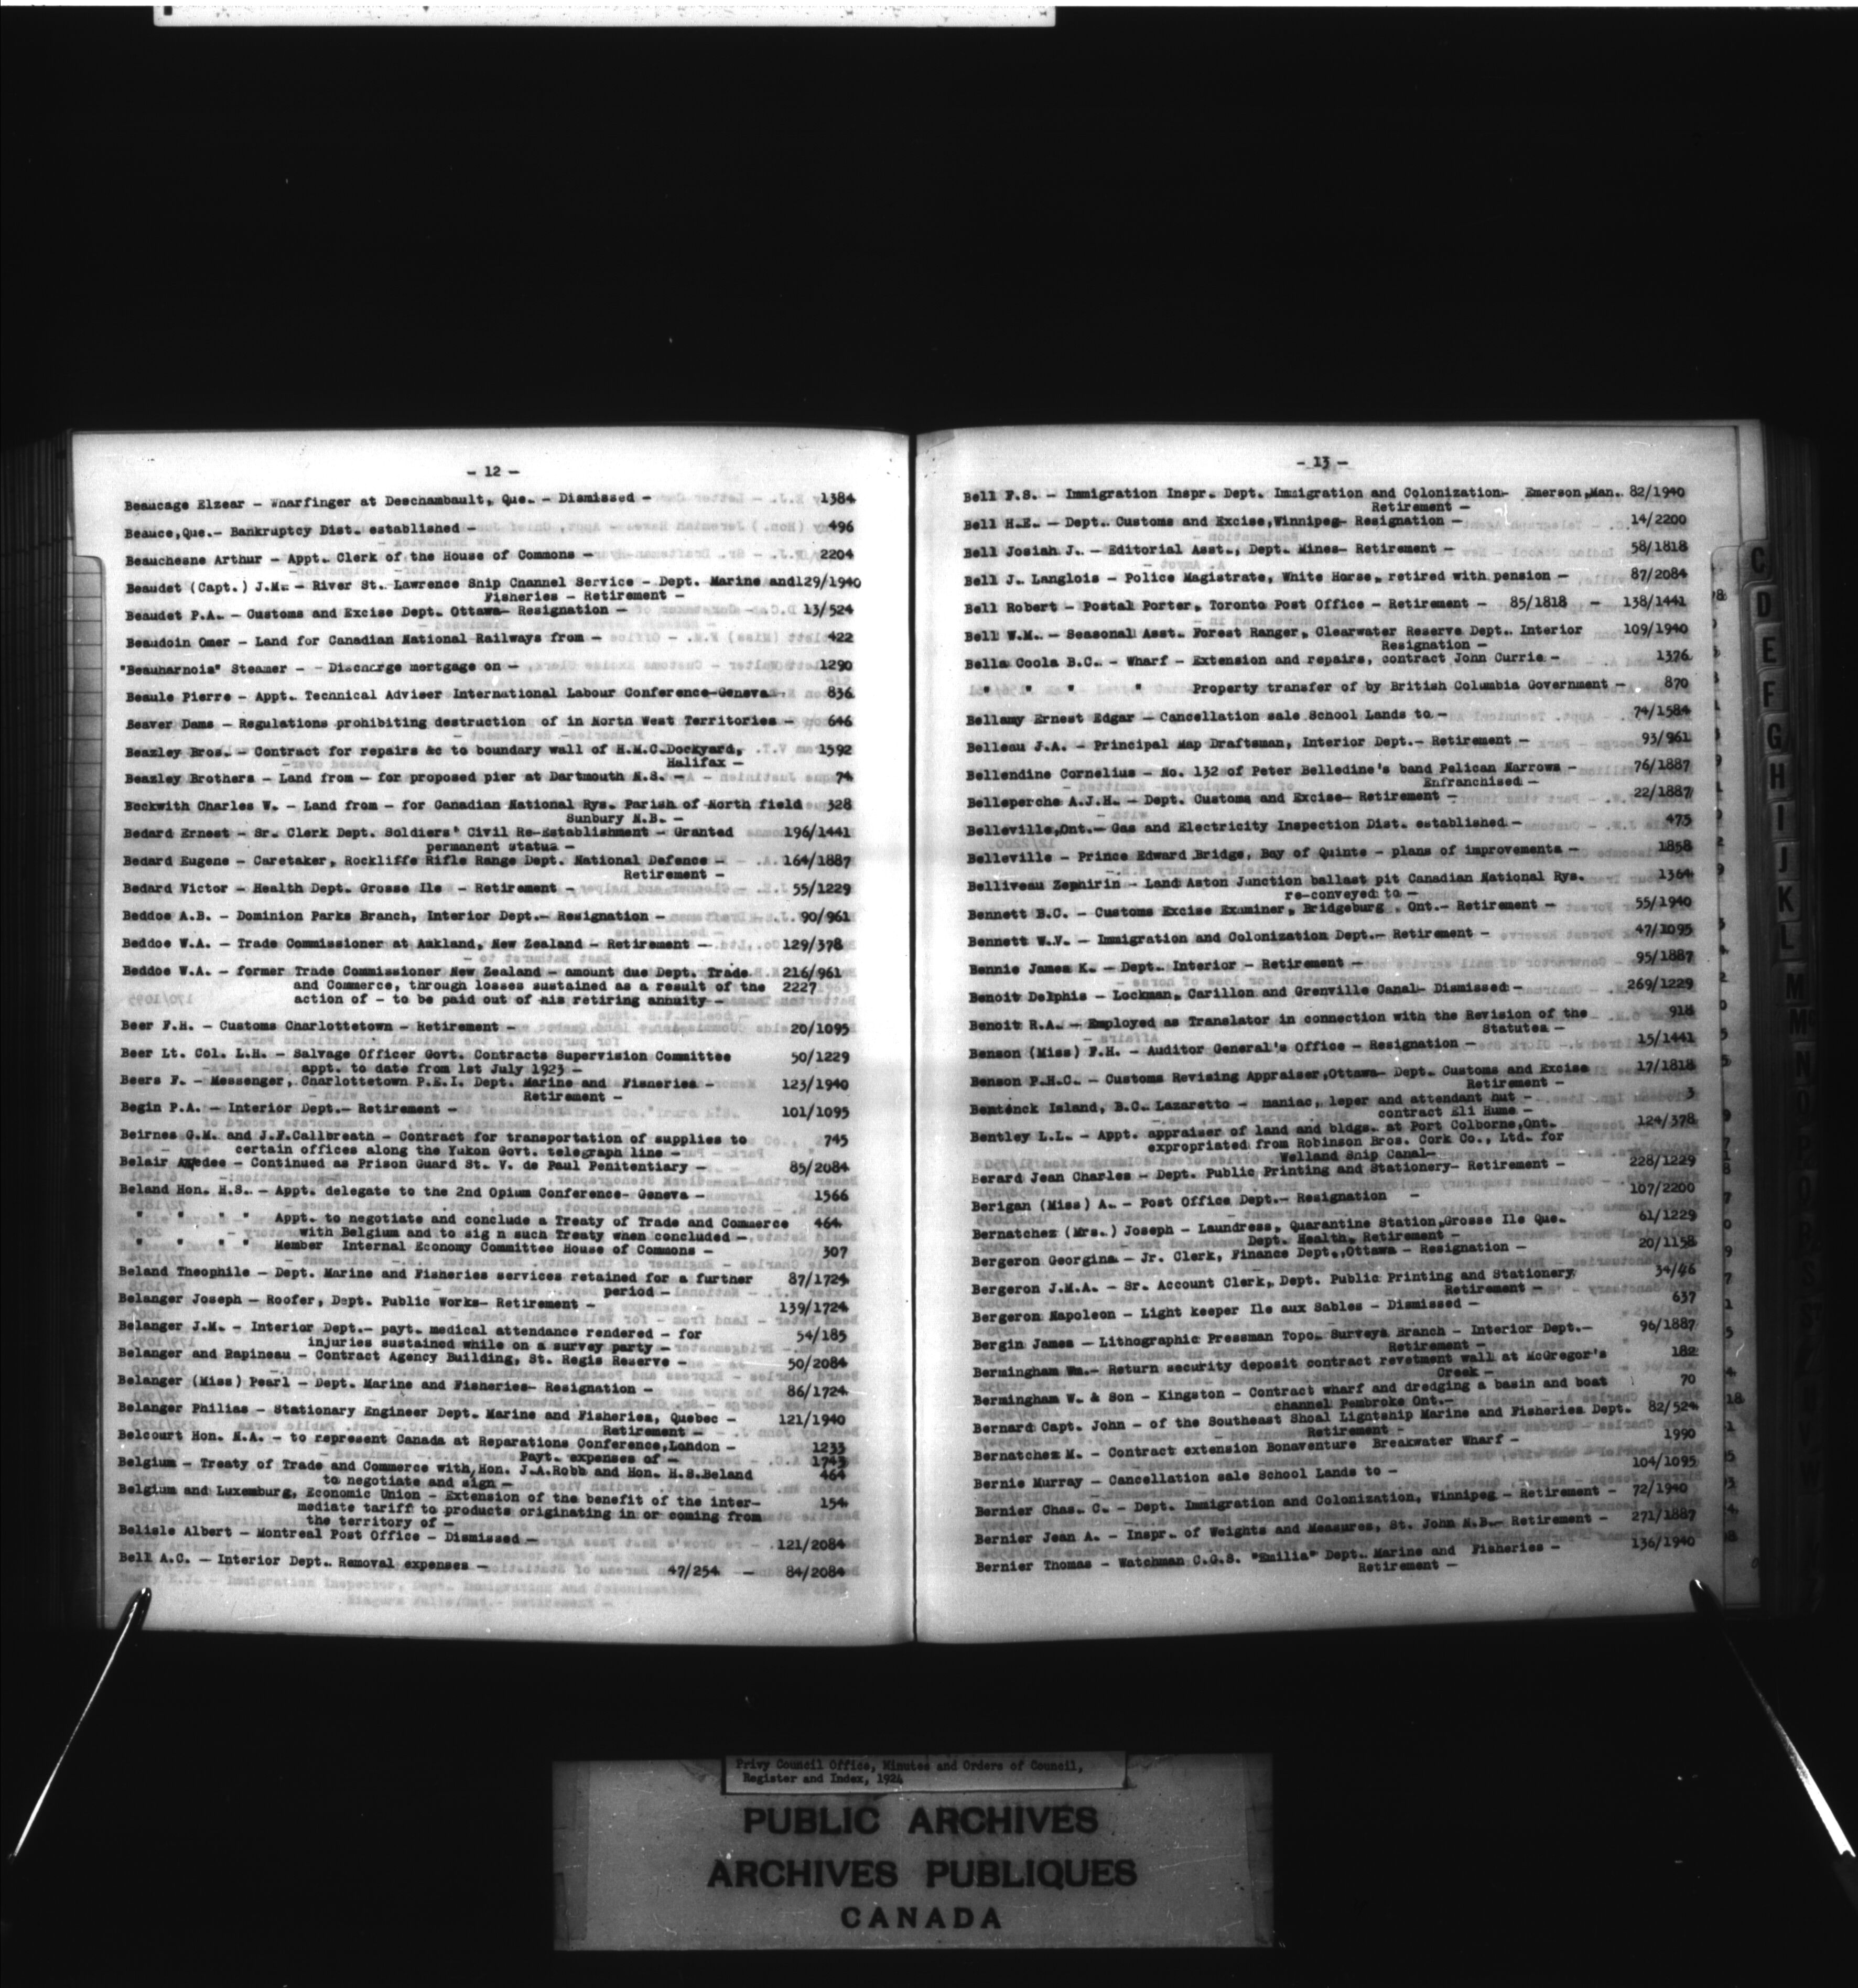 - 12 -
Beaucage Elzear - Wharfinger at Deschambault, Que. - Dismissed - 1384
Beauce,Que.- Bankruptcy Dist. established - 496
Beauchesne Arthur - Appt. Clerk of the House of Commons - 2204
Beaudet (Capt.) J.M. - River St. Lawrence Ship Channel Service - Dept. Marine and 129/1940
Fisheries - Retirement -
Beaudet P.A. - Customs and Excise Dept. Ottawa- Resignation - 13/524
Beaudoin Omer - Land for Canadian National Railways from - 422
"Beauharnois" Steamer - - Discharge mortgage on - 1290
Beaule Pierre - Appt. Technical Adviser International Labour Conference-Geneva. 836
Beaver Dams - Regulations prohibiting destruction of in North West Territories - 646
Beazley Bros. - Contract for repairs &c to boundary wall of H.M.C.Dockyard, 1592
Halifax -
Beazley Brothers - Land from - for proposed pier at Dartmouth N.S. - 74
Beckwith Charles W. - Land from - for Canadian National Rys. Parish of North field 328
Sunbury N.B. -
Bedard Ernest - Sr. Clerk Dept. Soldiers' Civil Re-Establishment - Granted 196/1441
permanent status -
Bedard Eugene - Caretaker, Rockliffe Rifle Range Dept. National Defence - 164/1887
Retirement -
Bedard Victor - Health Dept. Grosse Ile - Retirement - 55/1229
Beddoe A.B. - Dominion Parks Branch, Interior Dept.- Resignation - 90/961
Beddoe W.A. - Trade Commissioner at Aukland, New Zealand - Retirement - 129/378
Beddoe W.A. - former Trade Commissioner New Zealand - amount due Dept. Trade 216/961
and Commerce, through losses sustained as a result of the 2227
action of - to be paid out of his retiring annuity -
Beer F.H. - Customs Charlottetown - Retirement - 20/1095
Beer Lt. Col. L.H. - Salvage Officer Govt. Contracts Supervision Committee 50/1229
appt. to date from 1st July 1923 -
Beers F. - Messenger, Charlottetown P.E.I. Dept. Marine and Fisheries - 123/1940
Retirement -
Begin P.A. - Interior Dept.- Retirement - 101/1095
Beirnes G.M. and J.F.Callbreath - Contract for transportation of supplies to 745
certain offices along the Yukon Govt. telegraph line -
Belair Amedee - Continued as Prison Guard St. V. de Paul Penitentiary - 85/2084
Beland Hon. H.S. - Appt. delegate to the 2nd Opium Conference- Geneva - 1566
" " " " Appt. to negotiate and conclude a Treaty of Trade and Commerce 464
with Belgium and to sig n such Treaty when concluded -
" " " " Member Internal Economy Committee House of Commons - 307
Beland Theophile - Dept. Marine and Fisheries services retained for a further 87/1724
period -
Belanger Joseph - Roofer, Dept. Public Works- Retirement - 139/1724
Belanger J.M. - Interior Dept.- payt. medical attendance rendered - for 54/185
injuries sustained while on a survey party -
Belanger and Rapineau - Contract Agency Building, St. Regis Reserve - 50/2084
Belanger (Miss) Pearl - Dept. Marine and Fisheries- Resignation - 86/1724
Belanger Philias - Stationary Engineer Dept. Marine and Fisheries, Quebec - 121/1940
Retirement -
Belcourt Hon. N.A. - to represent Canada at Reparations Conference,London - 1233
Payt. expenses of - 1743
Belgium - Treaty of Trade and Commerce with,Hon. J.A.Robb and Hon. H.S.Beland 464
to negotiate and sign -
Belgium and Luxemburg, Economic Union - Extension of the benefit of the inter- 154
mediate tariff to products originating in or coming from
the territory of -
Belisle Albert - Montreal Post Office - Dismissed - 121/2084
Bell A.C. - Interior Dept. Removal expenses - 47/254 - 84/2084
- 13 -
Bell F.S. - Immigration Inspr. Dept. Immigration and Colonization- Emerson,Man. 82/1940
Retirement -
Bell H.E. - Dept. Customs and Excise,Winnipeg- Resignation - 14/2200
Bell Josiah J. - Editorial Asst., Dept. Mines- Retirement - 58/1818
Bell J. Langlois - Police Magistrate, White Horse, retired with pension - 87/2084
Bell Robert - Postal Porter, Toronto Post Office - Retirement - 85/1818 - 138/1441
Bell W.M. - Seasonal Asst. Forest Ranger, Clearwater Reserve Dept. Interior 109/1940
Resignation -
Bella Coola B.C. - Wharf - Extension and repairs, contract John Currie - 1376
" " " " Property transfer of by British Columbia Government - 870
Bellamy Ernest Edgar - Cancellation sale School Lands to - 74/1584
Belleau J.A. - Principal Map Draftsman, Interior Dept.- Retirement - 93/961
Bellendine Cornelius - No. 132 of Peter Belledine's band Pelican Narrows - 76/1887
Enfranchised -
Belleperche A.J.H. - Dept. Customs and Excise- Retirement - 22/1887
Belleville,Ont.- Gas and Electricity Inspection Dist. established - 473
Belleville - Prince Edward Bridge, Bay of Quinte - plans of improvements - 1858
Belliveau Zephirin - Land Aston Junction ballast pit Canadian National Rys. 1364
re-conveyed to -
Bennett B.C. - Customs Excise Examiner, Bridgeburg . Ont.- Retirement - 55/1940
Bennett W.V. - Immigration and Colonization Dept.- Retirement - 47/1095
Bennie James K. - Dept. Interior - Retirement - 95/1887
Benoit Delphis - Lockman, Carillon and Grenville Canal- Dismissed - 269/1229
Benoit R.A. - Employed as Translator in connection with the Revision of the 918
Statutes -
Benson (Miss) F.H. - Auditor General's Office - Resignation - 15/1441
Benson P.H.C. - Customs Revising Appraiser,Ottawa- Dept. Customs and Excise 17/1818
Retirement -
Bentinck Island, B.C. Lazaretto - maniac, leper and attendant hut - 3
contract Eli Hume -
Bentley L.L. - Appt. appraiser of land and bldgs. at Port Colborne,Ont. 124/378
expropriated from Robinson Bros. Cork Co., Ltd. for
Welland Ship Canal-
Berard Jean Charles - Dept. Public Printing and Stationery- Retirement - 228/1229
Berigan (Miss) A. - Post Office Dept.- Resignation - 107/2200
Bernatchez (Mrs.) Joseph - Laundress, Quarantine Station,Grosse Ile Que. 61/1229
Dept. Health, Retirement -
Bergeron Georgina - Jr. Clerk, Finance Dept.,Ottawa - Resignation - 20/1158
Bergeron J.M.A. - Sr. Account Clerk, Dept. Public Printing and Stationery 34/46
Retirement -
Bergeron Napoleon - Light keeper Ile aux Sables - Dismissed - 637
Bergin James - Lithographic Pressman Topo. Surveys Branch - Interior Dept.- 96/1887
Retirement -
Bermingham Wm.- Return security deposit contract revetment wall at McGregor's 182
Creek -
Bermingham W. & Son - Kingston - Contract wharf and dredging a basin and boat 70
channel Pembroke Ont.-
Bernard Capt. John - of the Southeast Shoal Lightship Marine and Fisheries Dept. 82/524
Retirement -
Bernatchez M. - Contract extension Bonaventure Breakwater Wharf - 1990
Bernie Murray - Cancellation sale School Lands to - 104/1095
Bernier Chas. C. - Dept. Immigration and Colonization, Winnipeg - Retirement - 72/1940
Bernier Jean A. - Inspr. of Weights and Measures, St. John N.B.- Retirement - 271/1887
Bernier Thomas - Watchman C.G.S. "Emilia" Dept. Marine and Fisheries - 136/1940
Retirement -
C
D
E
F
G
H
I
J
K
L
M
Privy Council Office, Minutes and Orders of Council,
Register and Index, 1924
PUBLIC ARCHIVES
ARCHIVES PUBLIQUES
CANADA